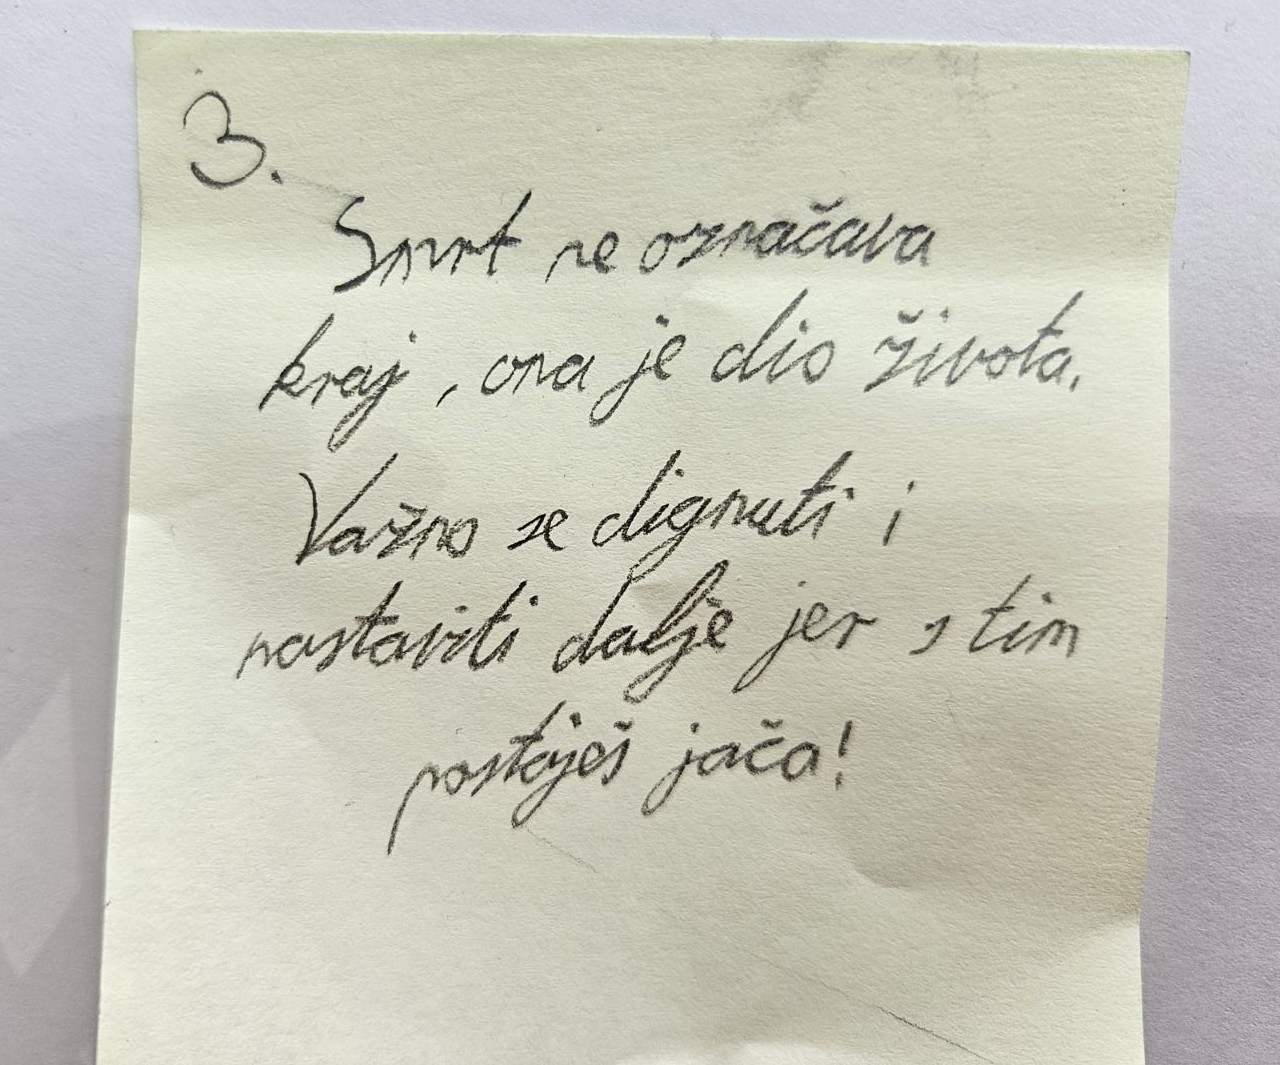 3.
Smrt ne označava
kraj, ona je dio života.
Važno se dignuti i
nastaviti dalje jer s tim
postaješ jača!